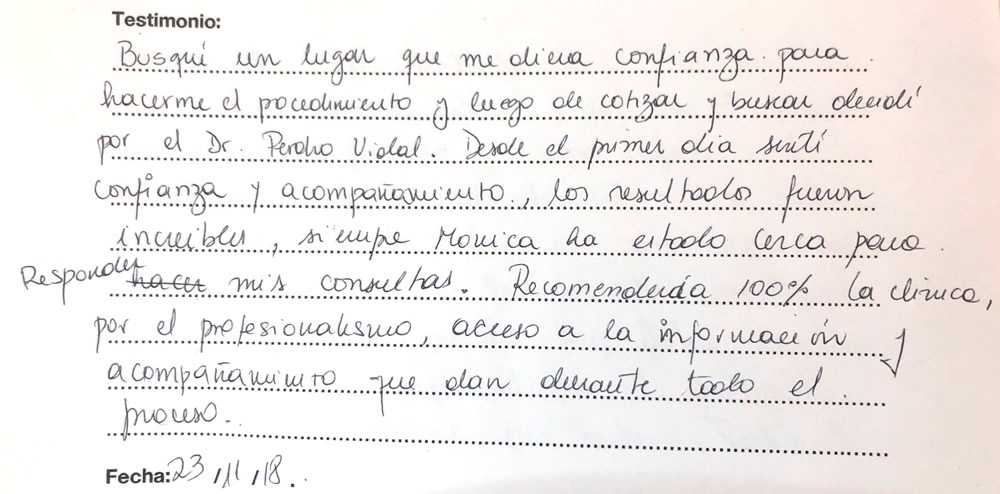 Testimonio:
Busqué un lugar que me diera confianza para
hacerme el pocedimiento y luego de cotizar y buscar decidí
por el Dr. Perdho Vidal. Desde el primer dia sentí
confianza y acompañamiento, los resultados fueron
increibles, siempre Monica ha estado cerca para
Responder hacer mis consultas. Recomendaría 100% la clinica,
por el profesionalismo, acceso a la información y
acompañamiento que dan durante todo el
proceso.
Fecha: 23/11/18.